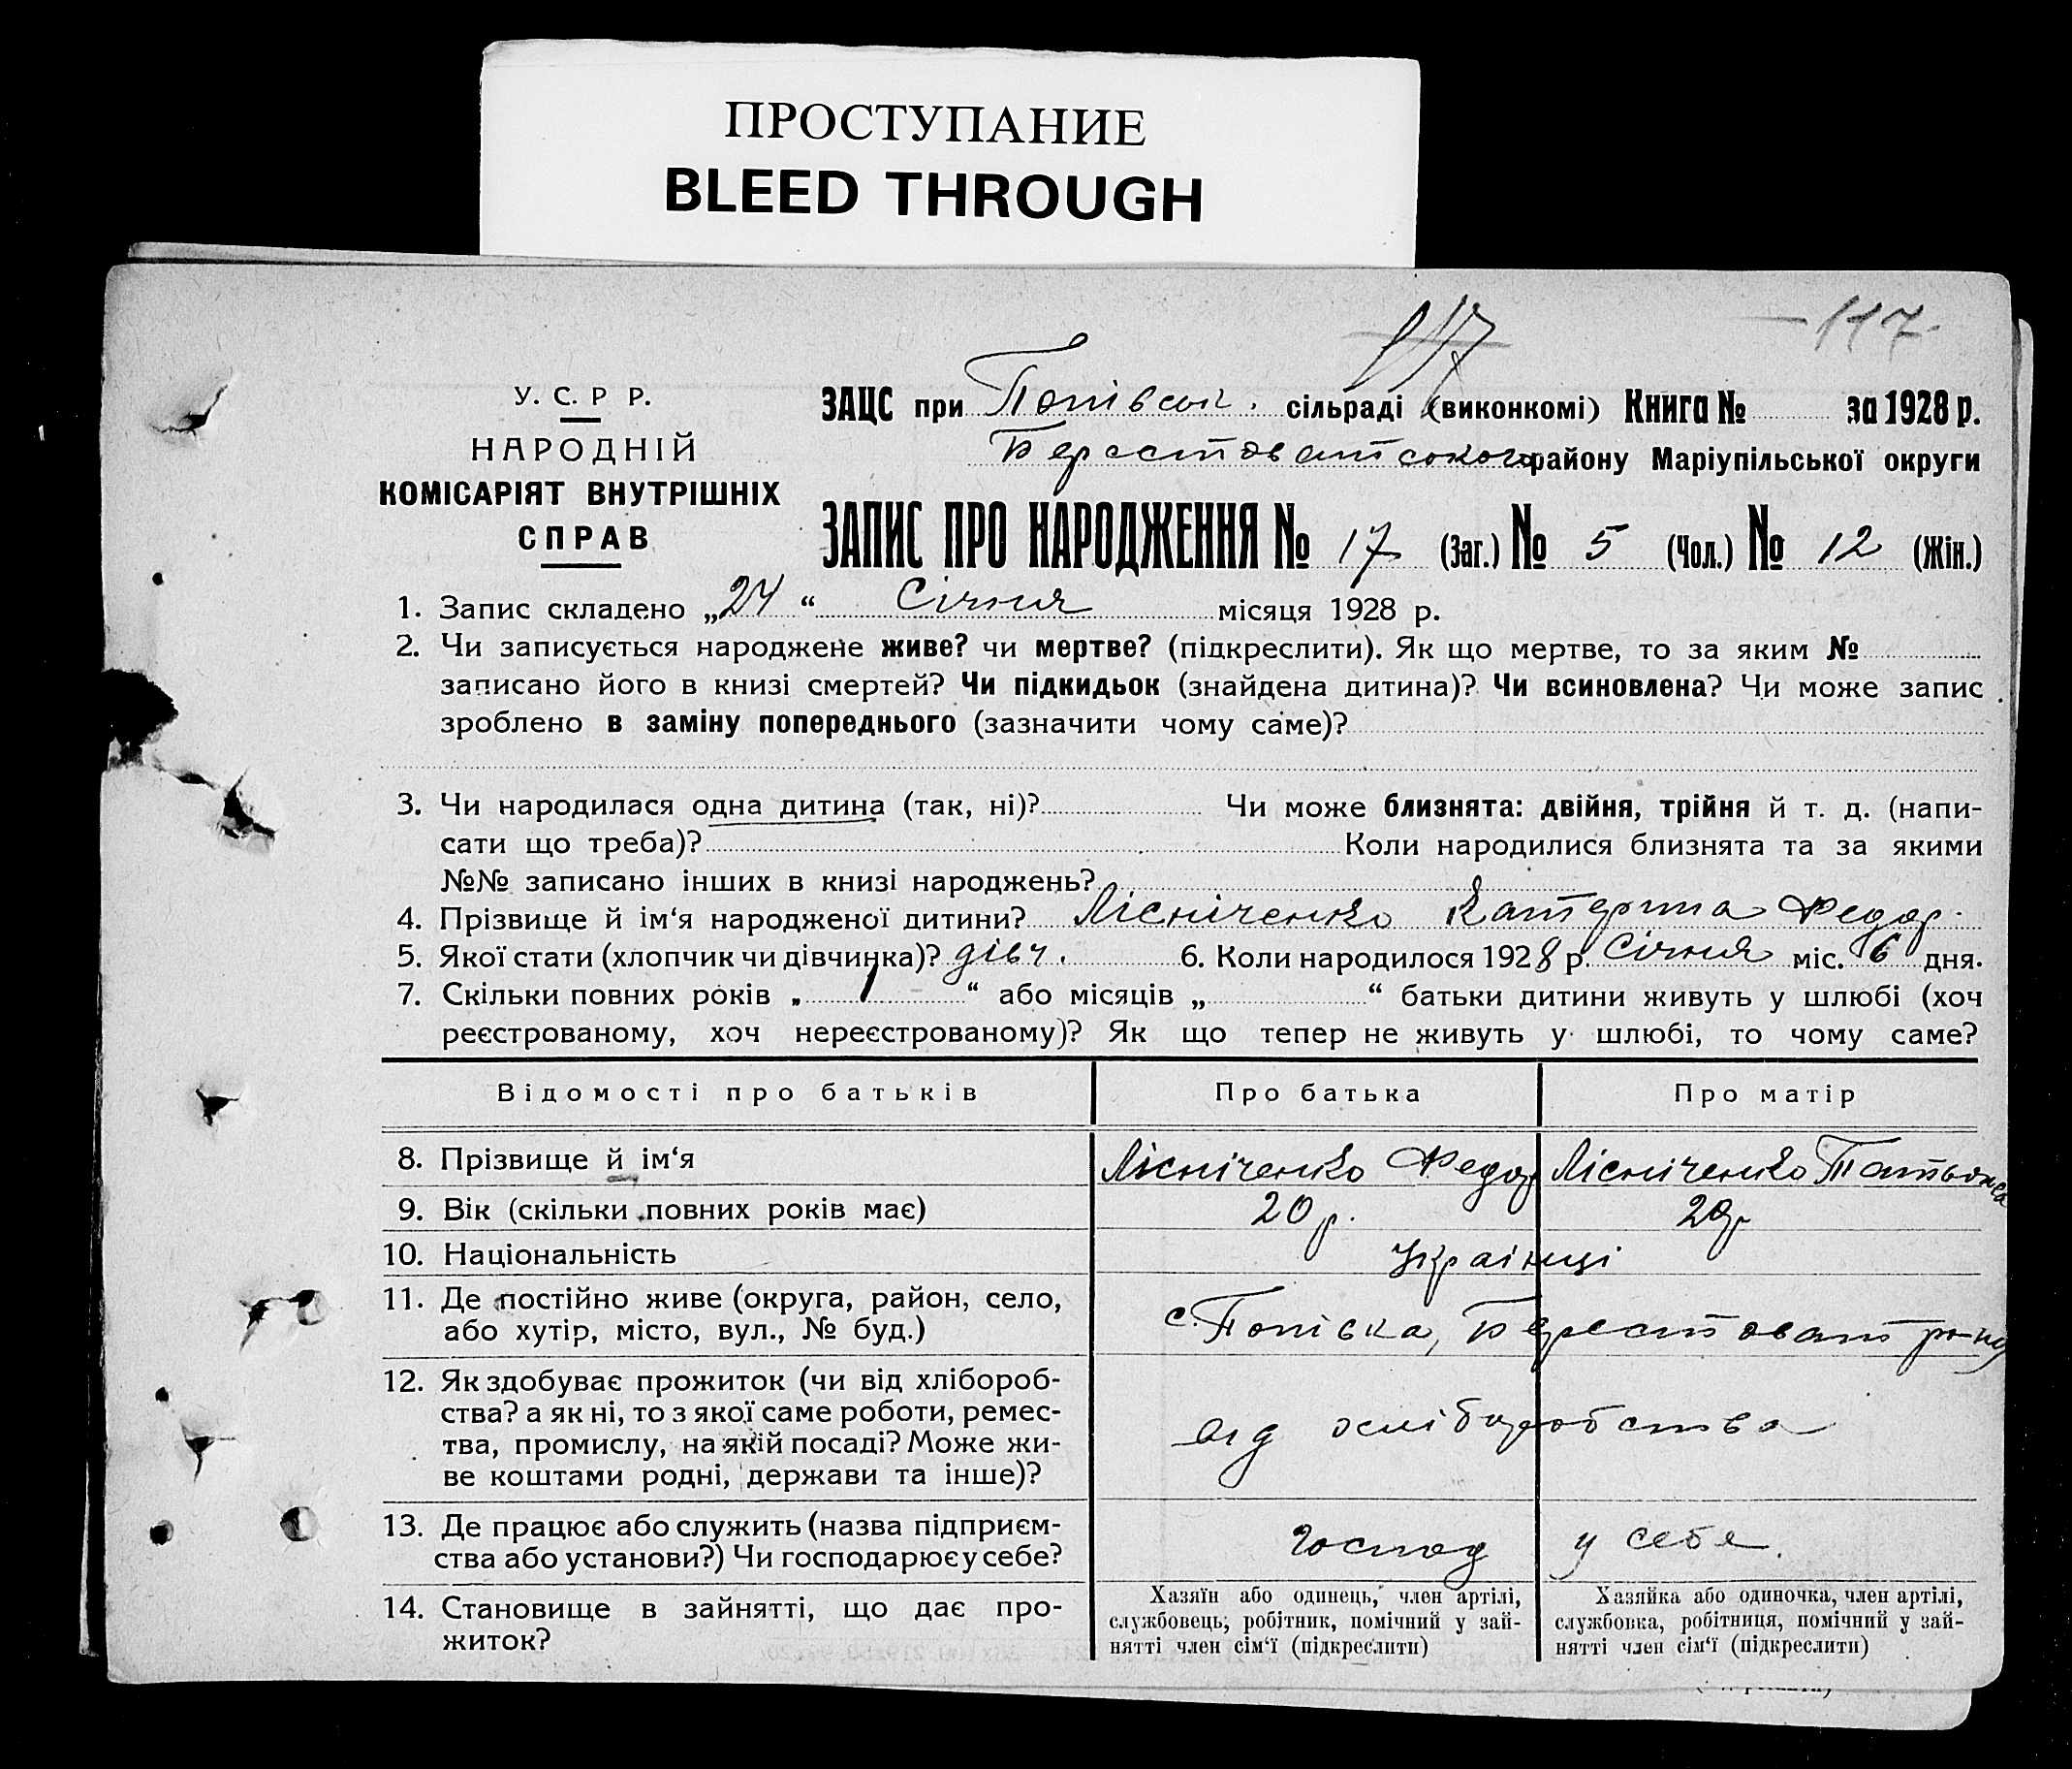 ПРОСТУПАНИЕ
BLEED THROUGH
117
-117-
У. С. Р Р.
НАРОДНІЙ
КОМІСАРІЯТ ВНУТРІШНІХ
СПРАВ
ЗАЦС при Попівськ. сільраді (виконкомі) Книга № за 1928 р.
Берестоватського району Маріупільської округи
ЗАПИС ПРО НАРОДЖЕННЯ № 17 (Заг.) № 5 (Чол.) № 12 (Жін.)
1. Запис складено „24“ Січня місяця 1928 р.
2. Чи записується народжене живе? чи мертве? (підкреслити). Як що мертве, то за яким №
записано його в книзі смертей? Чи підкидьок (знайдена дитина)? Чи всиновлена? Чи може запис
зроблено в заміну попереднього (зазначити чому саме)?
3. Чи народилася одна дитина (так, ні)? Чи може близнята: двійня, трійня й т. д. (напи-
сати що треба)? Коли народилися близнята та за якими
№№ записано інших в книзі народжень?
4. Прізвище й ім‘я народженої дитини? Лісніченко Катерина Федор.
5. Якої стати (хлопчик чи дівчинка)? дівч. 6. Коли народилося 1928 р. Січня міс. 6 дня.
7. Скільки повних років „ 1 “ або місяців „ “ батьки дитини живуть у шлюбі (хоч
реєстрованому, хоч нереєстрованому)? Як що тепер не живуть у шлюбі, то чому саме?
Відомості про батьків Про батька Про матір
8. Прізвище й ім‘я Лісніченко Федор Лісніченко Татьяна
9. Вік (скільки повних років має) 20 р. 20 р
10. Національність Українці
11. Де постійно живе (округа, район, село,
або хутір, місто, вул., № буд.) с. Попівка, Берестоват р-ну
12. Як здобуває прожиток (чи від хлібороб-
ства? а як ні, то з якої саме роботи, ремес-
тва, промислу, на якій посаді? Може жи-
ве коштами родні, держави та інше)? від хліборобства
13. Де працює або служить (назва підприєм-
ства або установи?) Чи господарює у себе? господ у себе.
14. Становище в зайнятті, що дає про-
житок?
Хазяїн або одинець, член артілі,
службовець, робітник, помічний у зай-
нятті член сім‘ї (підкреслити)
Хазяйка або одиночка, член артілі,
службовка, робітниця, помічний у зай-
нятті член сім‘ї (підкреслити)